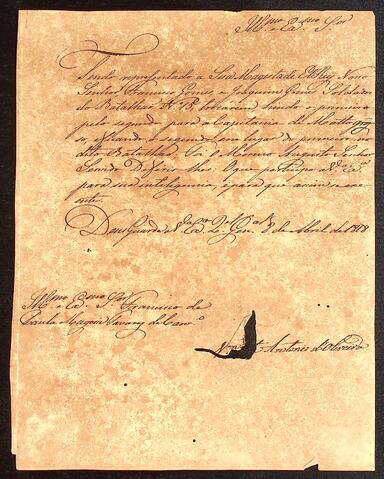 Illmo e Exmo Snr
Tendo representado a Sua Magestade ElRey Nosso
Senhor Francisco Gomes, e Joaquim Soldados
do Batalhão Nº 15, hindo o primeiro
pelo segundo para a Capitania de Matto gros
so, ficando o segundo em lugar do primeiro no
dito Batalhão: Foi o Mesmo Augusto Senhor
Servido Deferir-lhes: O que participo a V. Exa
para sua intelligencia, e para que assim o exe
cute.
Deos Guarde a V. Exa 8 de Abril de 1818
Illmo e Exmo Snr Francisco de
Paula Tavares de
Antonio d'Oliveira